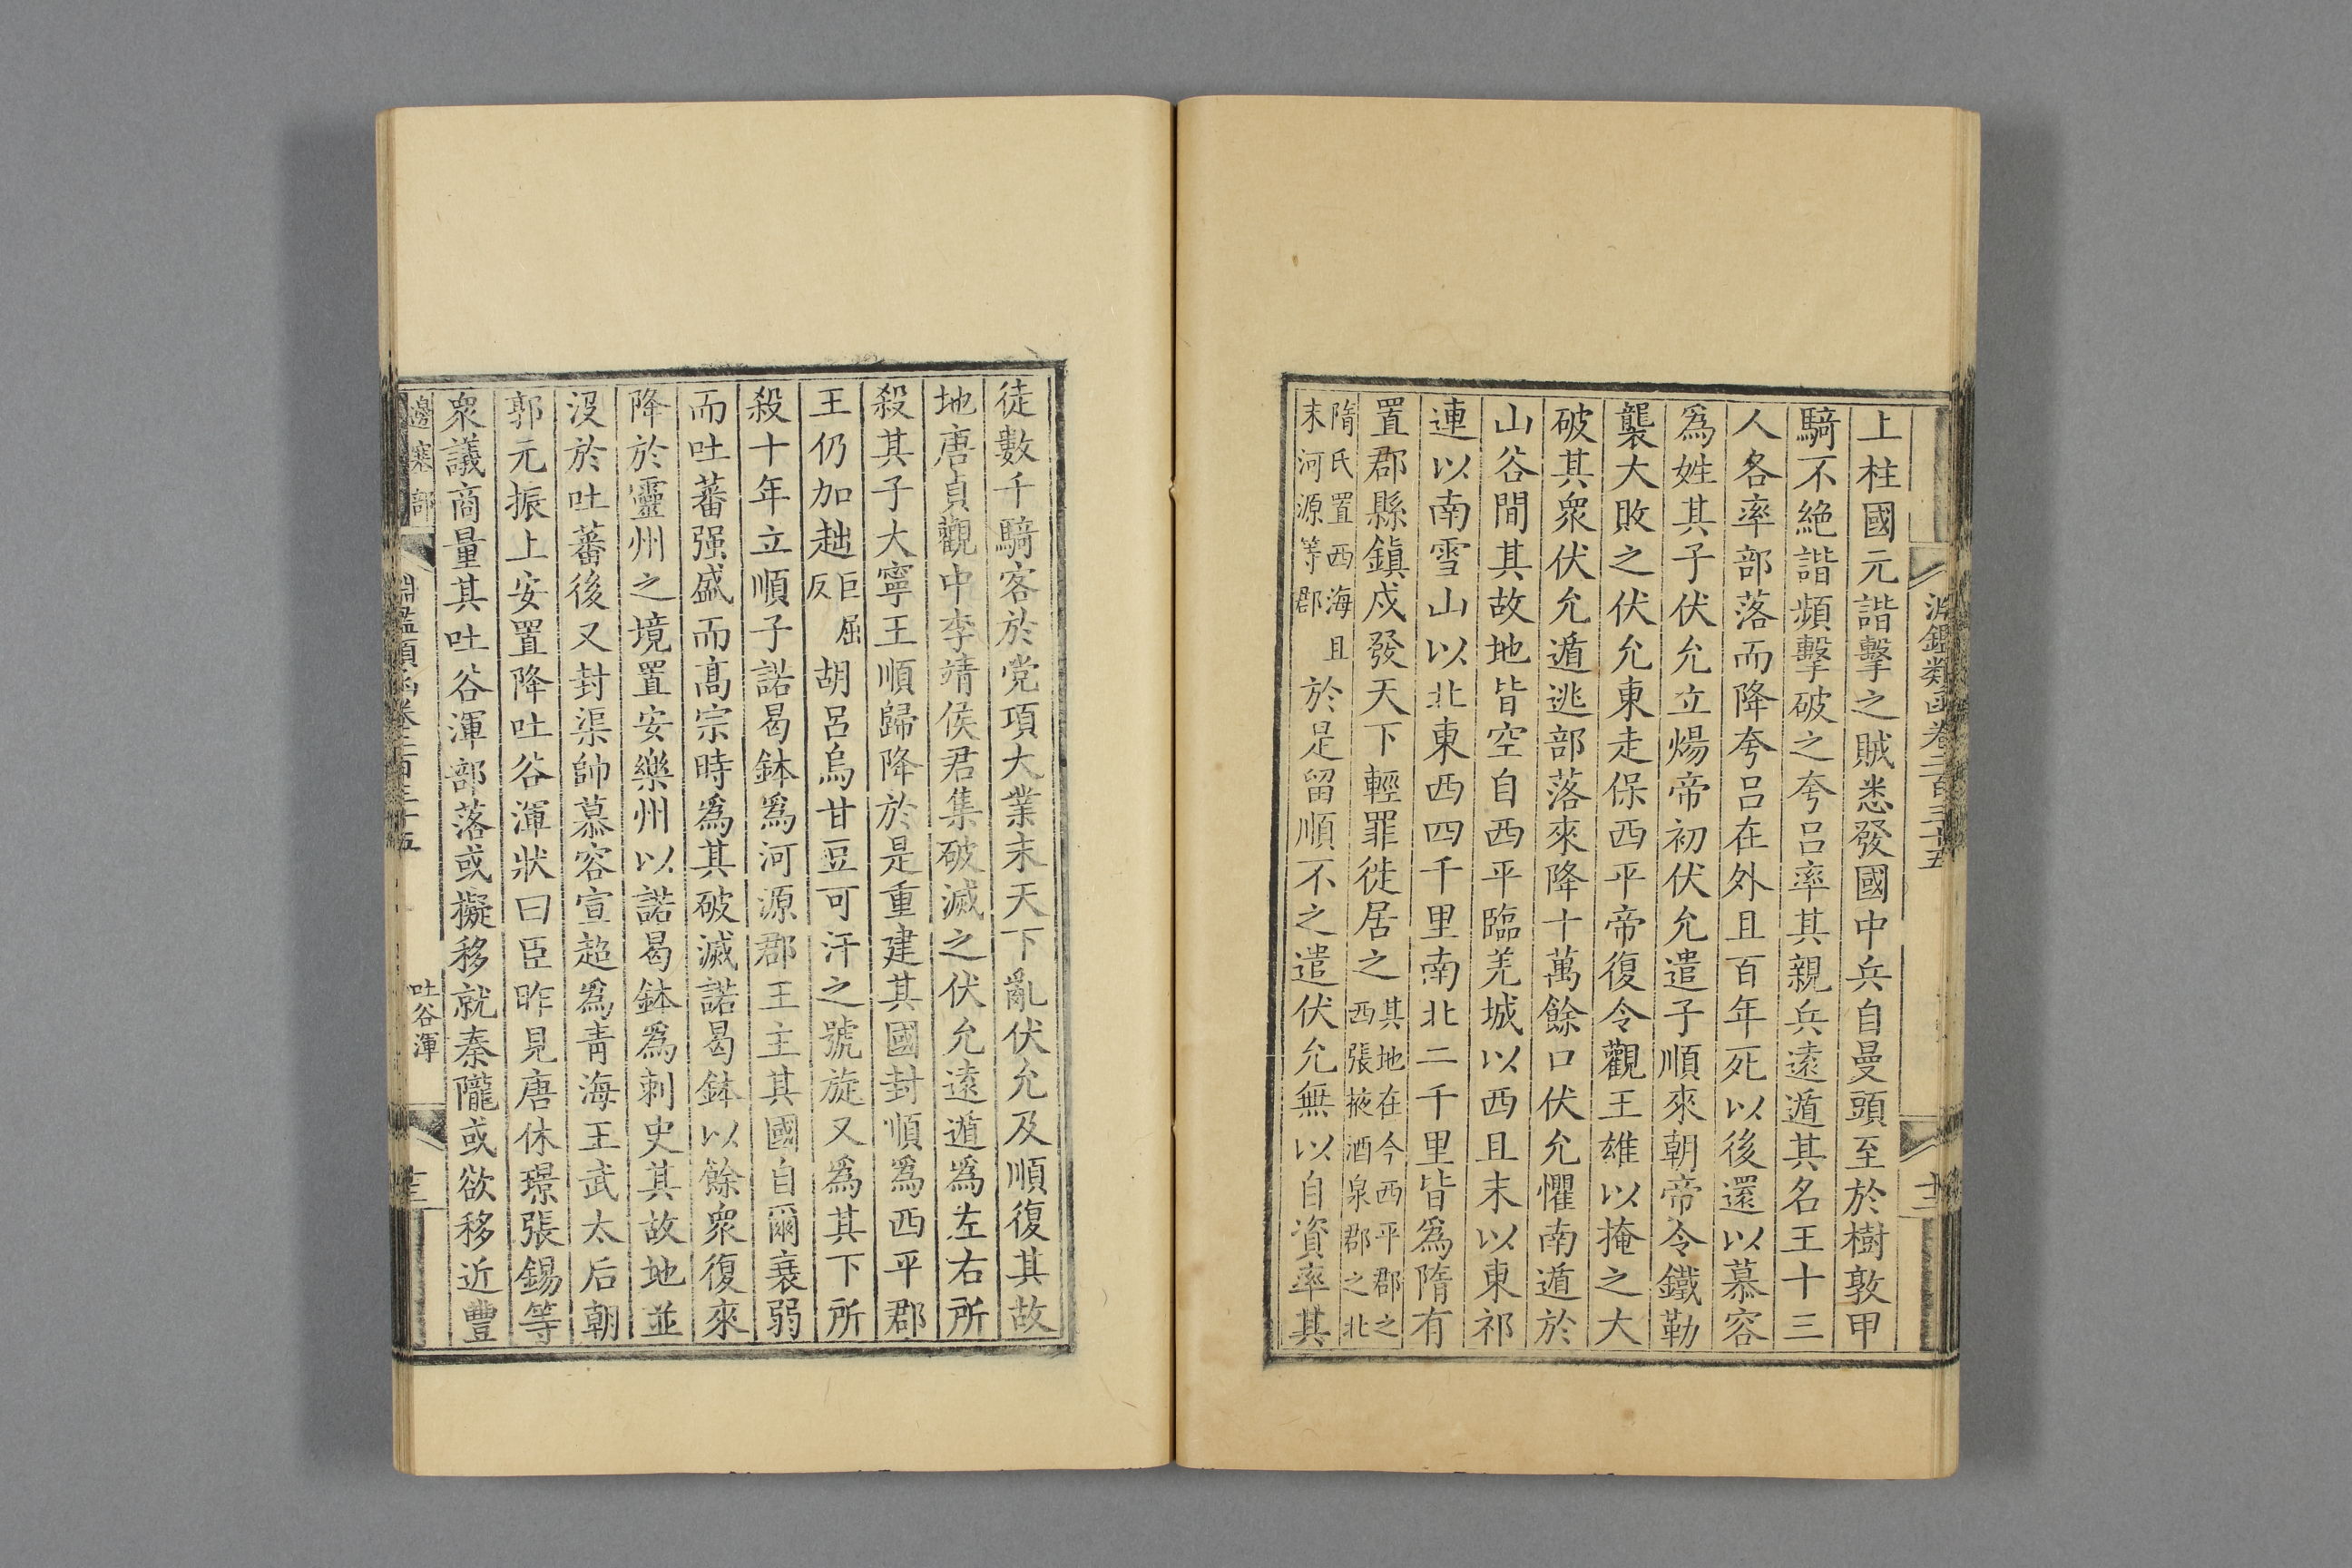 淵鑑類函卷二百三十五
十二
上柱國元諧擊之賊悉發國中兵自曼頭至於樹敦甲
騎不絶諧頻擊破之夸呂率其親兵遠遁其名王十三
人各率部落而降夸呂在外且百年死以後還以慕容
爲姓其子伏允立煬帝初伏允遣子順來朝帝令鐵勒
襲大敗之伏允東走保西平帝復令觀王雄以掩之大
破其衆伏允遁逃部落來降十萬餘口伏允懼南遁於
山谷間其故地皆空自西平臨羌城以西且末以東祁
連以南雪山以北東西四千里南北二千里皆爲隋有
置郡縣鎭戍發天下輕罪徙居之其地在今西平郡之西張掖酒泉郡之北
隋氏置西海且末河源等郡於是留順不之遣伏允無以自資率其
徒數千騎客於党項大業末天下亂伏允及順復其故
地唐貞觀中李靖侯君集破滅之伏允遠遁爲左右所
殺其子大寧王順歸降於是重建其國封順爲西平郡
王仍加趉巨屈反胡呂烏甘豆可汗之號旋又爲其下所
殺十年立順子諾曷鉢爲河源郡王主其國自爾衰弱
而吐蕃强盛而高宗時爲其破滅諾曷鉢以餘衆復來
降於靈州之境置安樂州以諾曷鉢爲刺史其故地並
沒於吐蕃後又封渠帥慕容宣超爲青海王武太后朝
郭元振上安置降吐谷渾狀曰臣昨見唐休璟張錫等
衆議商量其吐谷渾部落或擬移就秦隴或欲移近豐
邊塞部
淵鑑類函卷二百三十五
吐谷渾
十三